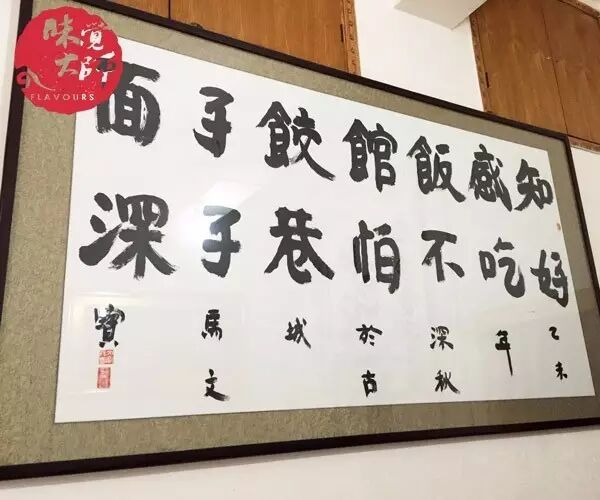 味覺
大師
FLAVOURS
知感飯館餃子面
好吃不怕巷子深
乙未年深秋於古城馬文